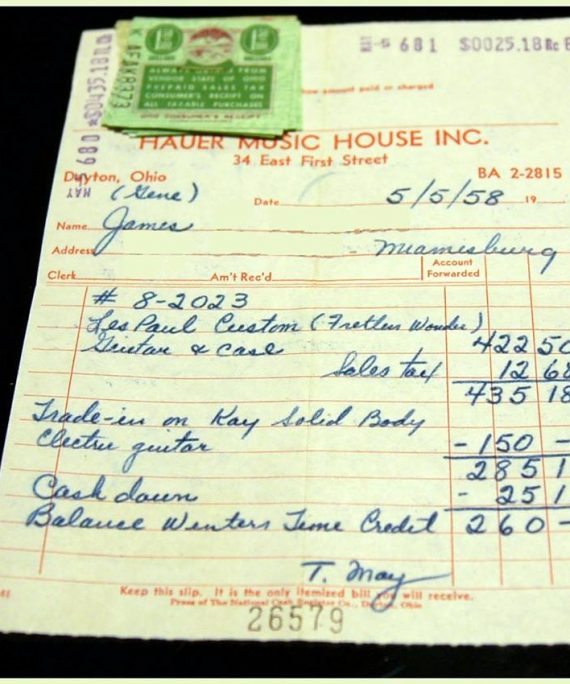 MAY -5 681 $0025.18Rc
MAY -5 680 *$0435.18TLB
AFAK8373
ALWAYS DEMAND FROM
VENDOR STATE OF OHIO
PREPAID SALES TAX
CONSUMER'S RECEIPT ON
ALL TAXABLE PURCHASES
OHIO CONSUMER'S RECEIPT
amount paid or charged
HAUER MUSIC HOUSE INC.
34 East First Street
Dayton, Ohio BA 2-2815
(Gene) Date 5/5/58 19
Name James
Address Miamesburg
Clerk Am't Rec'd. Account Forwarded
# 8-2023
Les Paul Custom (Fretless Wonder)
Guitar & Case 422 50
Sales tax 12 68
435 18
Trade-in on Kay Solid Body
Electric guitar - 150 -
285 1
Cash down - 25 1
Balance Winters Time Credit 260 -
T. May
Keep this slip. It is the only itemized bill you will receive.
Press of The National Cash Register Co., Dayton, Ohio
26579